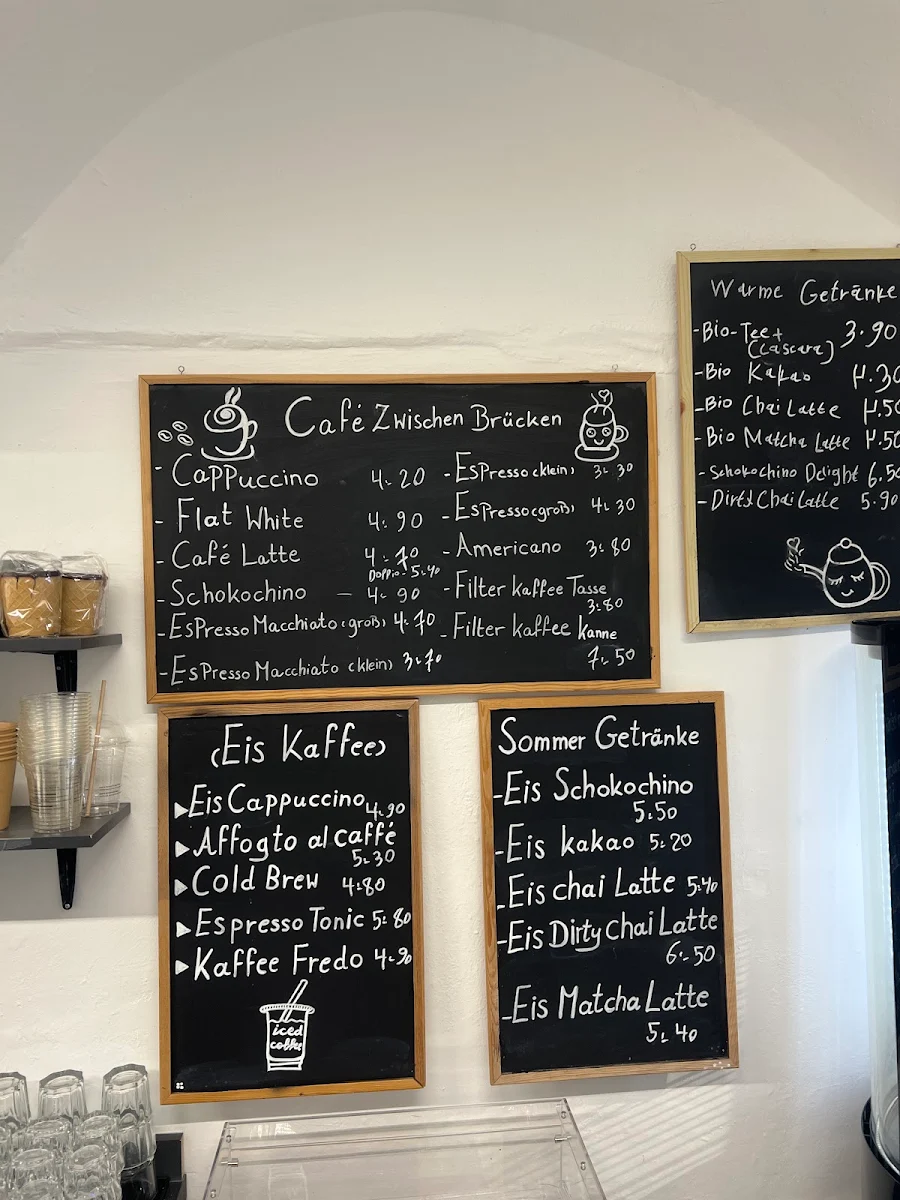 Café Zwischen Brücken
- Cappuccino 4.20
- Flat White 4.90
- Café Latte 4.70
Doppio - 5.40
- Schokochino - 4.90
- Espresso Macchiato (groß) 4.70
- Espresso Macchiato (klein) 3.70
- Espresso (klein) 3.30
- Espresso (groß) 4.30
- Americano 3.80
- Filter kaffee Tasse
3.80
- Filter kaffee Kanne
7.50
Warme Getränke
- Bio-Tee +
(Cascara) 3.90
- Bio Kakao 4.30
- Bio Chai Latte 4.50
- Bio Matcha Latte 4.50
- Schokochino Delight 6.50
- Dirty Chai Latte 5.90
(Eis Kaffee)
Eis Cappuccino 4.90
Affogto al caffé
5.30
Cold Brew 4.80
Espresso Tonic 5.80
Kaffee Fredo 4.90
iced
coffee
Sommer Getränke
- Eis Schokochino
5.50
- Eis kakao 5.20
- Eis chai Latte 5.40
- Eis Dirty Chai Latte
6.50
- Eis Matcha Latte
5.40